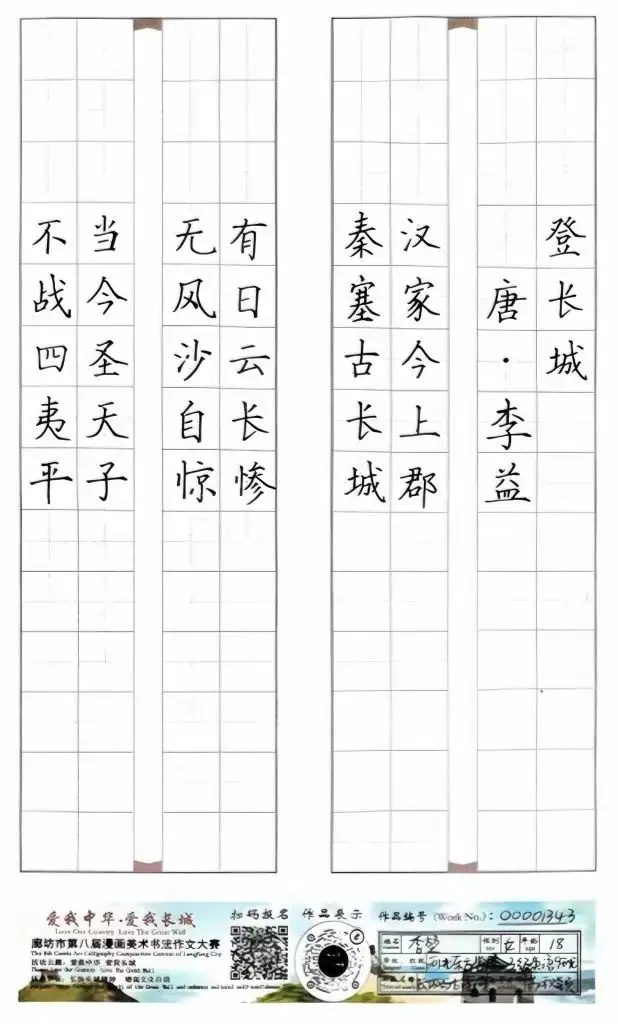 登长城
唐·李益
汉家今上郡
秦塞古长城
有日云长惨
无风沙自惊
当今圣天子
不战四夷平
爱我中华·爱我长城
Love Our Country Love The Great Wall
廊坊市第八届漫画美术书法作文大赛
扫码报名
作品展示
作品编号 (Work No.): 00001343
姓名
性别 女 年龄 18